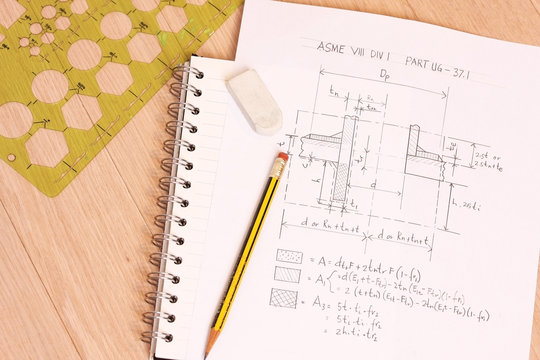 ASME VIII DIV I PART UG-37.1
Dp
tn
Rn
d
t1
2.5t or
2.5tn+te
h. 2.5ti
d or Rn+tn+t
d or Rn+tn+t
= A = dtrF+2tntrF(1-fr1)
= A1
= d(E1t-Ftr)-2tn(E1t-Ftr)(1-fr1)
= 2(t+tn)(E1t-Ftr)-2tn(E1t-Ftr)(1-fr1)
= A3 = 5t·ti·fr2
= 5ti·ti·fr2
= 2h·ti·fr2